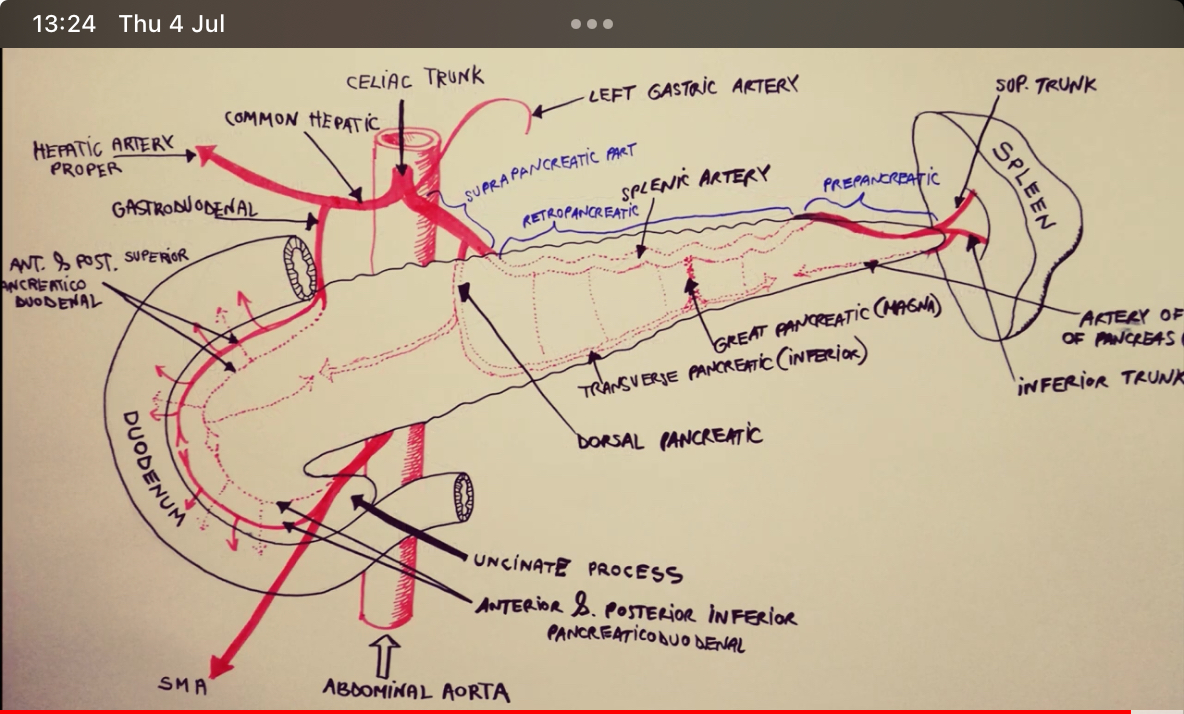 13:24 Thu 4 Jul
CELIAC TRUNK
LEFT GASTRIC ARTERY
SUP. TRUNK
COMMON HEPATIC
HEPATIC ARTERY
PROPER
SUPRAPANCREATIC PART
SPLENIC ARTERY
PREPANCREATIC
SPLEEN
GASTRODUODENAL
RETROPANCREATIC
ANT. & POST. SUPERIOR
ANCREATICO
DUODENAL
GREAT PANCREATIC (MAGNA)
ARTERY OF
OF PANCREAS (
TRANSVERSE PANCREATIC (INFERIOR)
INFERIOR TRUNK
DUODENUM
DORSAL PANCREATIC
UNCINATE PROCESS
ANTERIOR & POSTERIOR INFERIOR
PANCREATICODUODENAL
SMA
ABDOMINAL AORTA